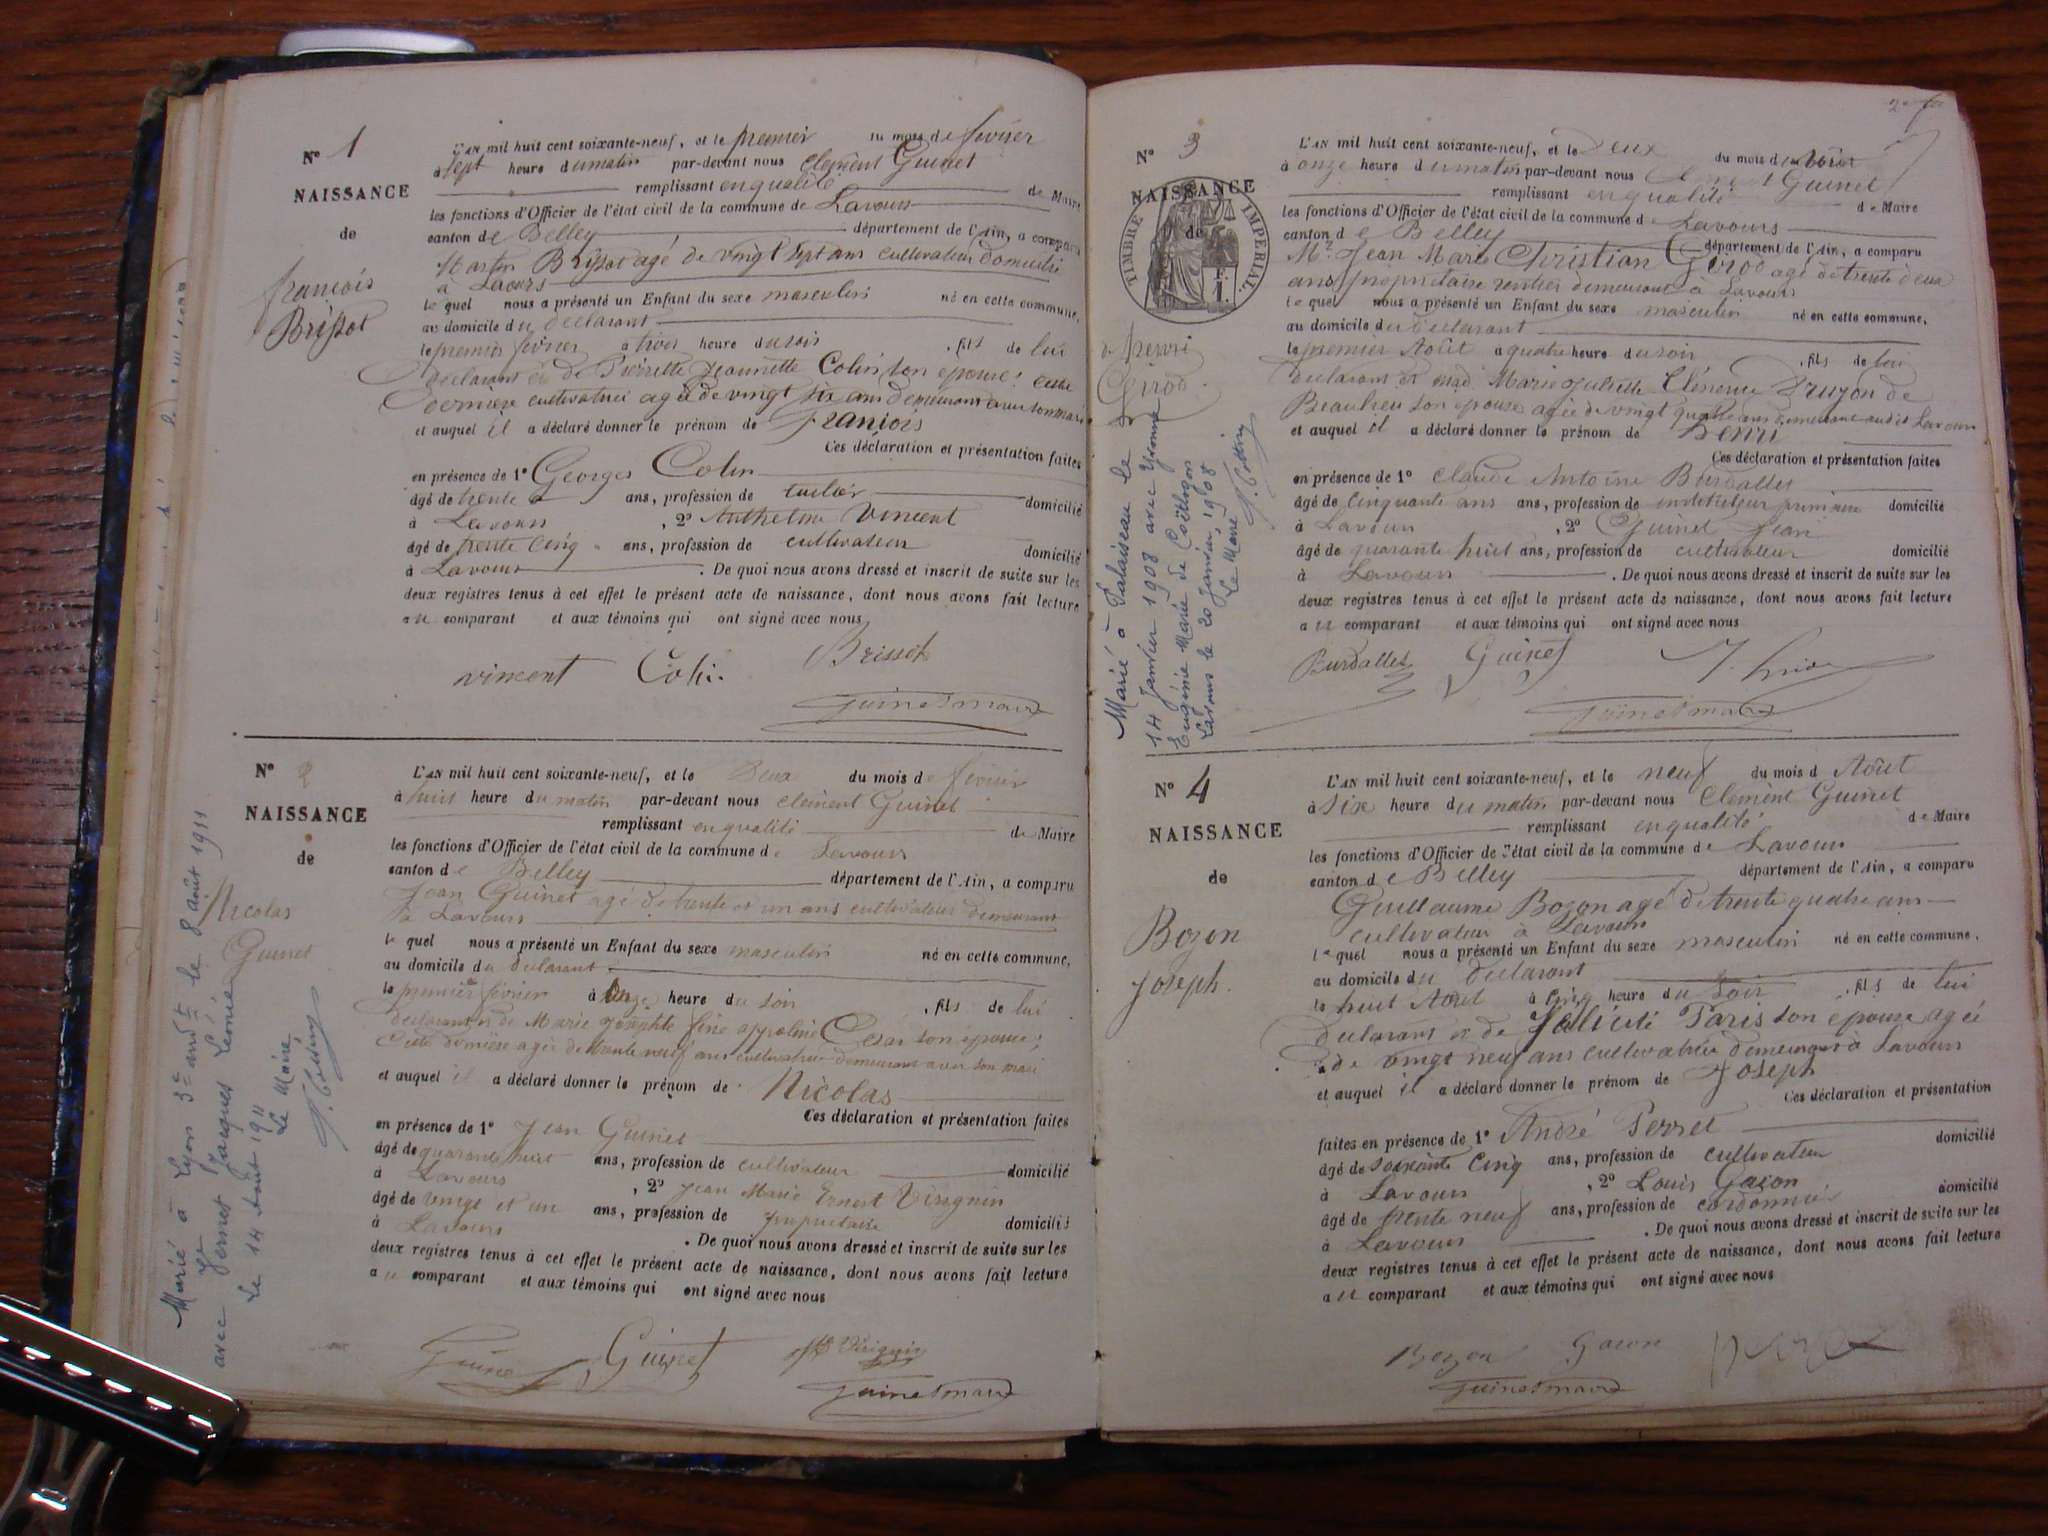 N° 1
NAISSANCE
de
françois
Brissot
L'AN mil huit cent soixante-neuf, et le premier du mois de fevrier
à sept heure du matin par-devant nous Clement Guinet
remplissant en qualité de Maire
les fonctions d'Officier de l'état civil de la commune de Lavours
canton de Belley département de l'Ain, a comparu
Martin Brissot agé de vingt sept ans cultivateur domicilié
à Lavours
le quel nous a présenté un Enfant du sexe masculin né en cette commune,
au domicile du declarant
le premier fevrier à trois heure du soir , fils de lui
declarant et de Pierrette Jeannette Colin son epouse; cette
derniere cultivatrice agée de vingt six ans demeurant avec son mari
et auquel il a déclaré donner le prénom de françois
Ces déclaration et présentation faites
en présence de 1° Georges Colin
âgé de trente ans, profession de domicilié
à Lavours , 2° Anthelme Vincent
âgé de trente cinq ans, profession de cultivateur domicilié
à Lavours . De quoi nous avons dressé et inscrit de suite sur les
deux registres tenus à cet effet le présent acte de naissance, dont nous avons fait lecture
au comparant et aux témoins qui ont signé avec nous
vincent Colin Brissot
Guinet maire
N° 2
NAISSANCE
de
Nicolas
Guinet
Marié à Lyon 3e arrdt le 8 août 1911
avec Jernet Jacques Léonie
Le 14 Août 1911
Le Maire
L'AN mil huit cent soixante-neuf, et le Deux du mois de fevrier
à huit heure du matin par-devant nous Clement Guinet
remplissant en qualité de Maire
les fonctions d'Officier de l'état civil de la commune de Lavours
canton de Belley département de l'Ain, a comparu
Jean Guinet agé de trente et un ans cultivateur demeurant
à Lavours
le quel nous a présenté un Enfant du sexe masculin né en cette commune,
au domicile du declarant
le premier fevrier à onze heure du soir , fils de lui
declarant et de Marie Josephte fine appoline Cesar son épouse;
Cette derniere agée de trente neuf ans cultivatrice demeurant avec son mari
et auquel il a déclaré donner le prénom de Nicolas
Ces déclaration et présentation faites
en présence de 1° Jean Guinet
âgé de quarante huit ans, profession de cultivateur domicilié
à Lavours , 2° Jean Marie Ernest Virignin
âgé de vingt et un ans, profession de propriétaire domicilié
à Lavours . De quoi nous avons dressé et inscrit de suite sur les
deux registres tenus à cet effet le présent acte de naissance, dont nous avons fait lecture
au comparant et aux témoins qui ont signé avec nous
Guinet Guinet Virignin
Guinet maire
N° 3
NAISSANCE
de
TIMBRE IMPERIAL
Henri
Girod
Marié à Palaiseau le
14 Janvier 1908 avec Yvonne
Eugénie Marie de Coëtlogon
Lavours le 20 Janvier 1908
Le Maire
L'AN mil huit cent soixante-neuf, et le Deux du mois d'août
à onze heure du matin par-devant nous Clement Guinet
remplissant en qualité de Maire
les fonctions d'Officier de l'état civil de la commune de Lavours
canton de Belley département de l'Ain, a comparu
Mr Jean Marie Christian Girod agé de trente deux
ans propriétaire rentier demeurant à Lavours
le quel nous a présenté un Enfant du sexe masculin né en cette commune,
au domicile du declarant
le premier Août à quatre heure du soir , fils de lui
declarant et Mad. Marie Juliette Clémence Druyon de
Beaulieu son epouse agée de vingt quatre ans demeurant audit Lavours
et auquel il a déclaré donner le prénom de Henri
Ces déclaration et présentation faites
en présence de 1° Claude Antoine Burdallet
âgé de cinquante ans ans, profession de instituteur primaire domicilié
à Lavours , 2° Guinet Jean
âgé de quarante huit ans, profession de cultivateur domicilié
à Lavours . De quoi nous avons dressé et inscrit de suite sur les
deux registres tenus à cet effet le présent acte de naissance, dont nous avons fait lecture
au comparant et aux témoins qui ont signé avec nous
Burdallet Guinet
Guinet maire
N° 4
NAISSANCE
de
Bozon
Joseph.
L'AN mil huit cent soixante-neuf, et le neuf du mois d Août
à six heure du matin par-devant nous Clement Guinet
remplissant en qualité de Maire
les fonctions d'Officier de l'état civil de la commune de Lavours
canton de Belley département de l'Ain, a comparu
Guillaume Bozon agé de trente quatre ans
cultivateur à Lavours
le quel nous a présenté un Enfant du sexe masculin né en cette commune,
au domicile du declarant
le huit Août à cinq heure du soir , fils de lui
declarant et de Félicité Paris son épouse agée
de vingt neuf ans cultivatrice demeurant à Lavours
et auquel il a déclaré donner le prénom de Joseph
Ces déclaration et présentation
faites en présence de 1° André Perret
âgé de soixante cinq ans, profession de cultivateur domicilié
à Lavours , 2° Louis Gacon
âgé de trente neuf ans, profession de cordonnier domicilié
à Lavours . De quoi nous avons dressé et inscrit de suite sur les
deux registres tenus à cet effet le présent acte de naissance, dont nous avons fait lecture
au comparant et aux témoins qui ont signé avec nous
Bozon Gacon
Guinet maire